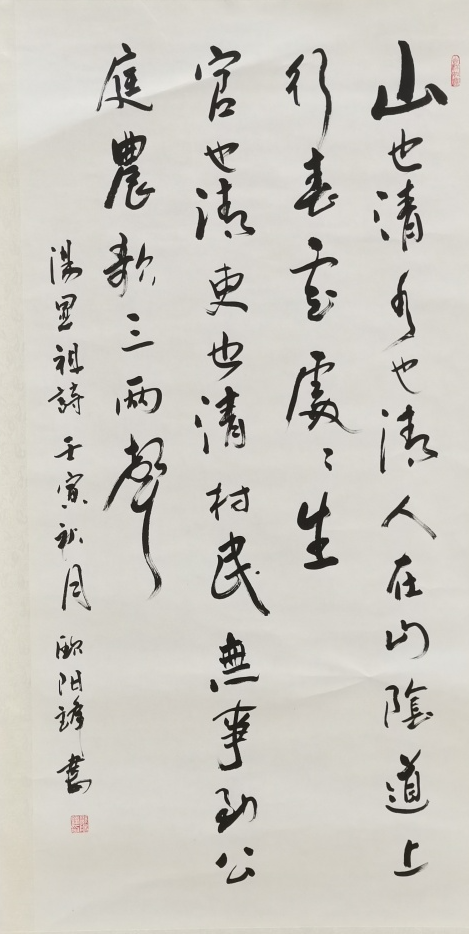 山也清水也清人在山陰道上
行春雲處〻生
官也清吏也清村民無事到公
庭農歌三兩聲
湯显祖詩壬寅秋月歐阳書